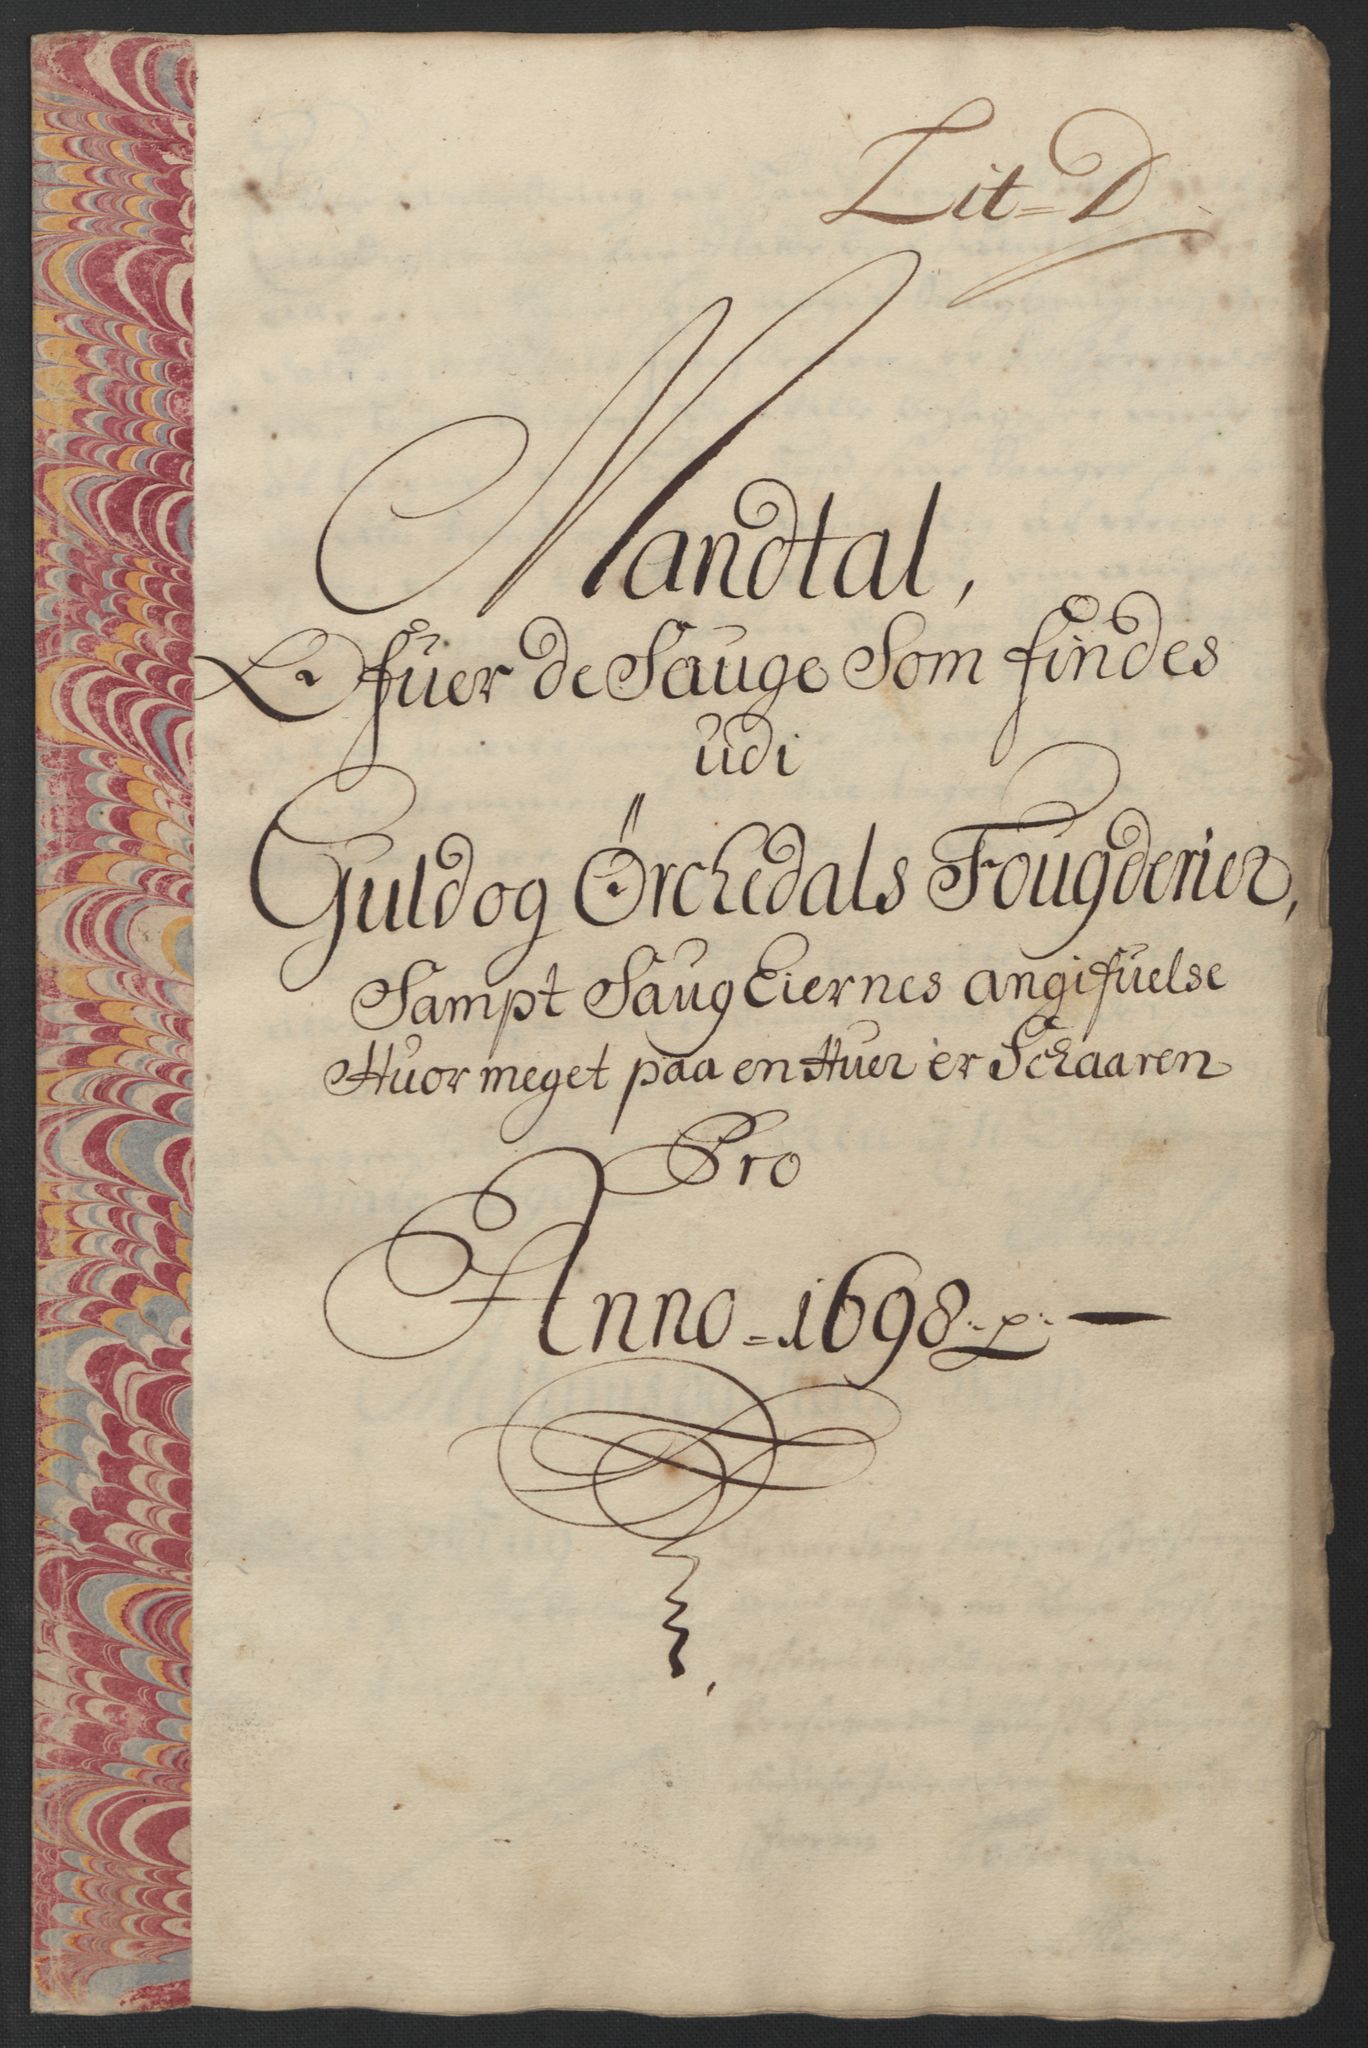 Lit=D
Mandtal,
Ofuer de Sauge Som findes
udi
Guldog Örchedals Fougderier,
Sampt Saug Eiernes angifuelse
Huor meget paa en Huer er Schaaren
Pro
Anno=1698